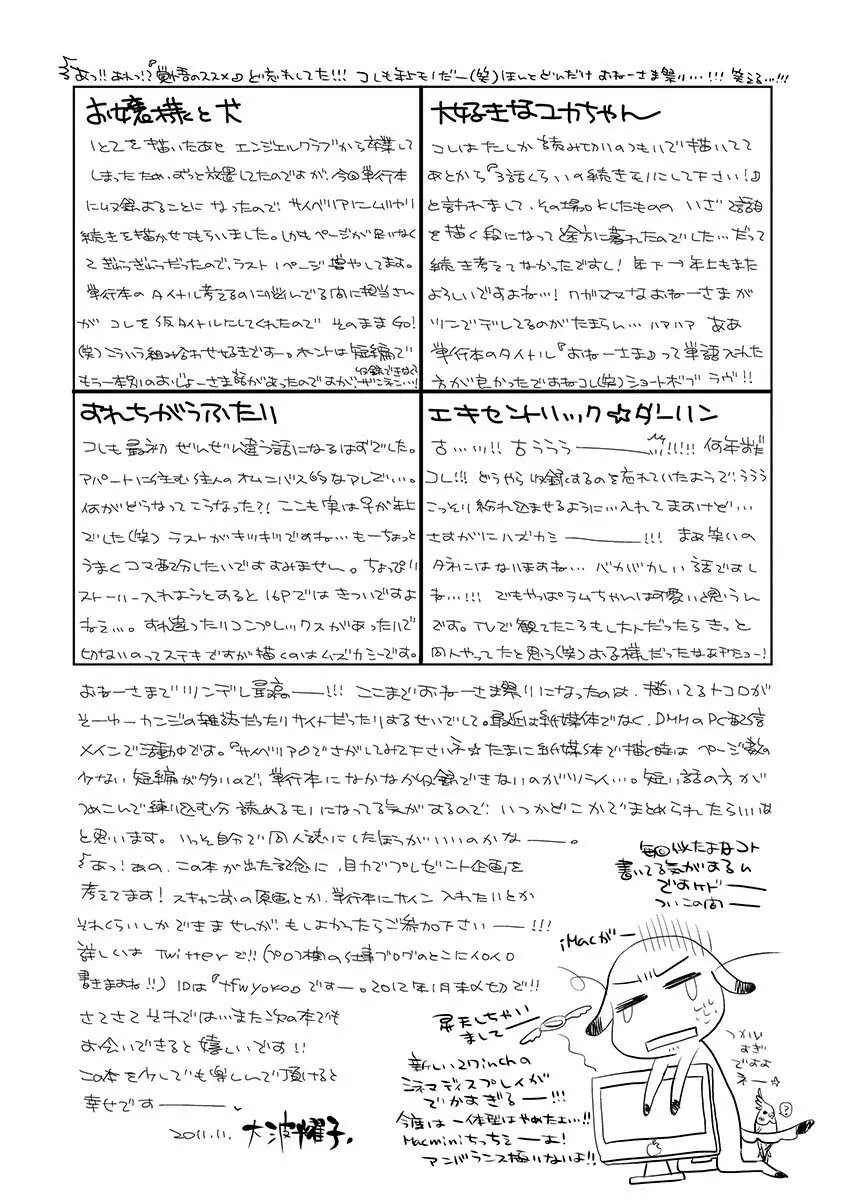 あっ!!あれっ!?『覚悟のススメ』ど忘れしてた!!!コレも年上モノだー(笑)ほんとどんだけおねーさま祭り…!!!笑える…!!!
お嬢様と犬
1と2を描いたあとエンジェルクラブから卒業して
しまったため、ずっと放置してたのですが、今回単行本
に収録することになったので、サイベリアにムリヤリ
続きを描かせてもらいました。しかもページが足りなく
てぎゅうぎゅうだったので、ラスト1ページ増やしてます。
単行本のタイトル考えるのに悩んでる間に担当さん
がコレを仮タイトルにしてくれたのでそのままGo!
(笑)こういう組み合わせ好きですー。ホントは短編で
もう一本別のおじょーさま話があったのですが、収録できなくてザンネン…!
大好きなユカちゃん
コレはたしか読み切りのつもりで描いてて
あとから『3話くらいの続きモノにして下さい!』
と言われまして、その場のりとしたものの いざ2話目
を描く段になって途方に暮れたのでした…だって
続き考えてなかったですし!年下→年上もまた
よろしいですよね…!ワガママなおねーさまが
ツンでデレしてるのがたまらん…ハァハァ ああ
単行本のタイトル『おねーさま』って単語入れた
方が良かったですねコレ(笑)ショートボブ ラヴ!!
すれちがうふたり
コレも最初ぜんぜん違う話になるはずでした。
アパートに住む住人のオムニバス的なアレでい…。
何がどうなってこうなった?!ここも実は子が年上
でした(笑)ラストがキツキツですね…もーちょっと
うまくコマ配分したいですすみません。ちょっぴり
ストーリー入れようとすると16Pではきついですよ
ねぇ…。すれ違ったりコンプレックスがあったりで
切ないのってステキですが描くのはムズカシーです。
エキセントリック☆ダーリン
古…ッ!!古うううー!!!!!何年前だ
コレ!!!どうやら収録するのを忘れていたようで、ううう
こっそり紛れ込ませるように…入れてますけど…
さすがにハズカシー!!! まぁ笑いの
タネにはなりますね…バカバカしい話ですし
ね…!!!でもやっぱラムちゃんは可愛いと思うん
です。TVで観てたころもし大人だったらきっと
同人やってたと思う(笑)
おねーさまでツンデレ最高ー!!!ここまでおねーさま祭りになったのは、描いてるトコロが
そーゆーカンジの雑誌だったりサイトだったりするせいでして。最近は紙媒体でなく、DMMのPC配信
メインで活動中です。『サイベリア』でさがしてみて下さいネ☆たまに紙媒体で描く時はページ数の
少ない短編が多いので、単行本になかなか収録できないのがツライ…。短い話の方が
つめこんで練り込む分読めるモノになってる気がするので、いつかどこかでまとめられたらいいな
と思います。いっそ自分で同人誌にしたほうがいいのかなー。
あっ!あの、この本が出た記念に、自力でプレゼント企画を
考えてます!スキャン前の原画とか、単行本にサイン入れたりとか
それくらいしかできませんが、もしよかったらご参加下さいー!!!
詳しくはTwitterで!!(プロフ欄の仕事ブログのとこにイロイロ
書きますね!!)IDは『tfwyoko』ですー。2012年1月末〆切で!!
さてさてそれでは…また次の本でも
お会いできると嬉しいです!!
この本を少しでも楽しんで頂けると
幸せですー
2011.11. 大波耀子。
毎回似たよなコト
書いてる気がするん
ですケドー
ついこの間ー
iMacがー
昇天しちゃい
ましてー
新しい27inchの
シネマディスプレイが
でかすぎるー!!!
今度は一体型はやめたよ…!!
Macminiちっちぇーよ!
アンバランス極りないよ!!
つかい
すぎ
ですよ
ネー☆
?